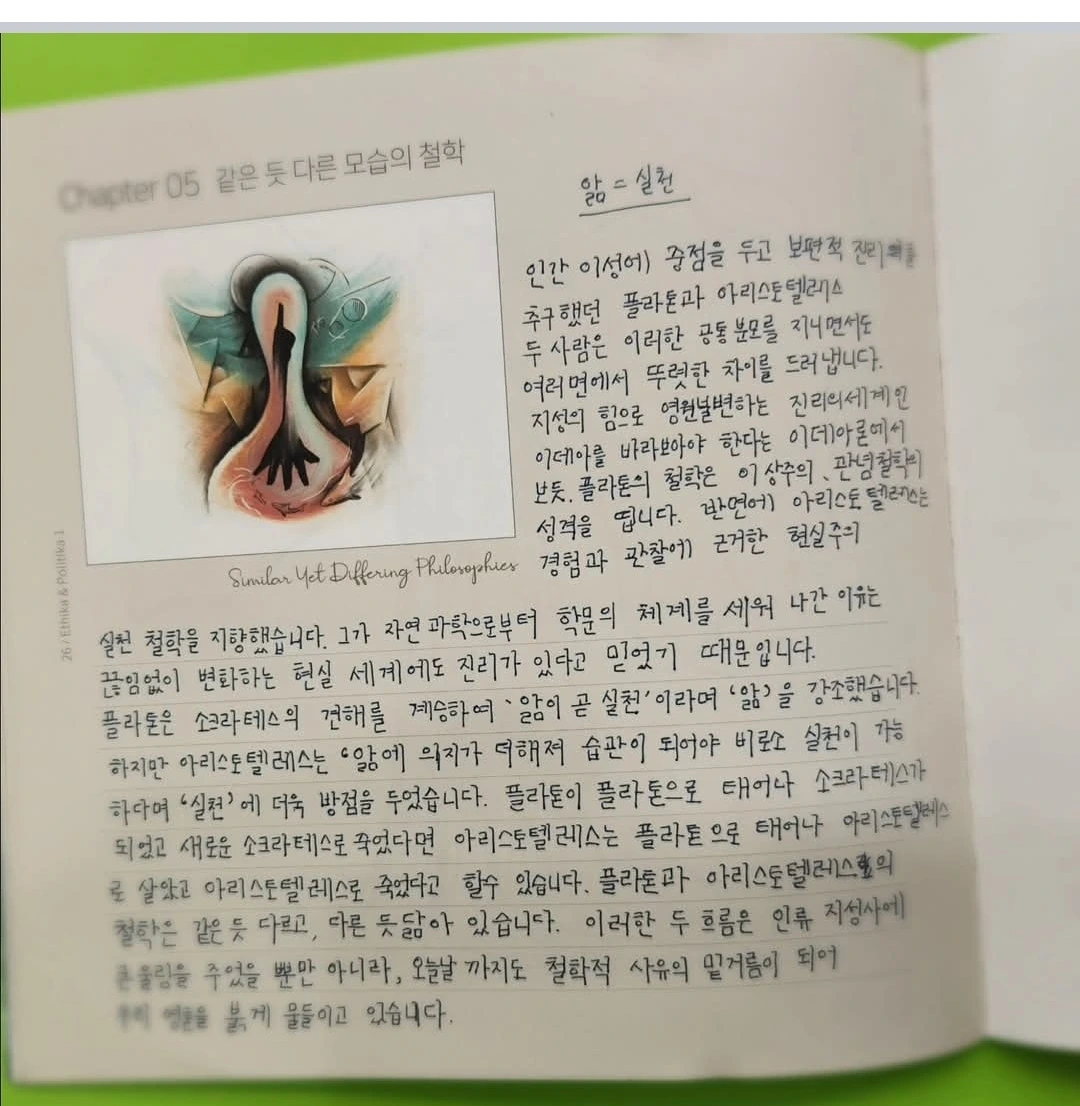 Chapter 05 같은 듯 다른 모습의 철학
앎 = 실천
인간 이성에 중점을 두고 보편적 진리
추구했던 플라톤과 아리스토텔레스
두 사람은 이러한 공통 분모를 지니면서도
여러면에서 뚜렷한 차이를 드러냅니다.
지성의 힘으로 영원불변하는 진리의세계인
이데아를 바라보아야 한다는 이데아론에서
보듯, 플라톤의 철학은 이상주의、관념철학의
성격을 띕니다. 반면에 아리스토텔레스는
경험과 관찰에 근거한 현실주의
Similar Yet Differing Philosophies
26 / Ethika & Politika 1
실천 철학을 지향했습니다. 그가 자연과학으로부터 학문의 체계를 세워 나간 이유는
끊임없이 변화하는 현실 세계에도 진리가 있다고 믿었기 때문입니다.
플라톤은 소크라테스의 견해를 계승하여 '앎이 곧 실천'이라며 '앎'을 강조했습니다.
하지만 아리스토텔레스는 '앎에 의지가 더해져 습관이 되어야 비로소 실천이 가능
하다며 '실천'에 더욱 방점을 두었습니다. 플라톤이 플라톤으로 태어나 소크라테스가
되었고 새로운 소크라테스로 죽었다면 아리스토텔레스는 플라톤으로 태어나 아리스토텔레스
로 살았고 아리스토텔레스로 죽었다고 할수 있습니다. 플라톤과 아리스토텔레스의
철학은 같은 듯 다르고, 다른 듯닮아 있습니다. 이러한 두 흐름은 인류 지성사에
큰울림을 주었을 뿐만 아니라, 오늘날 까지도 철학적 사유의 밑거름이 되어
우리 영혼을 붉게 물들이고 있습니다.